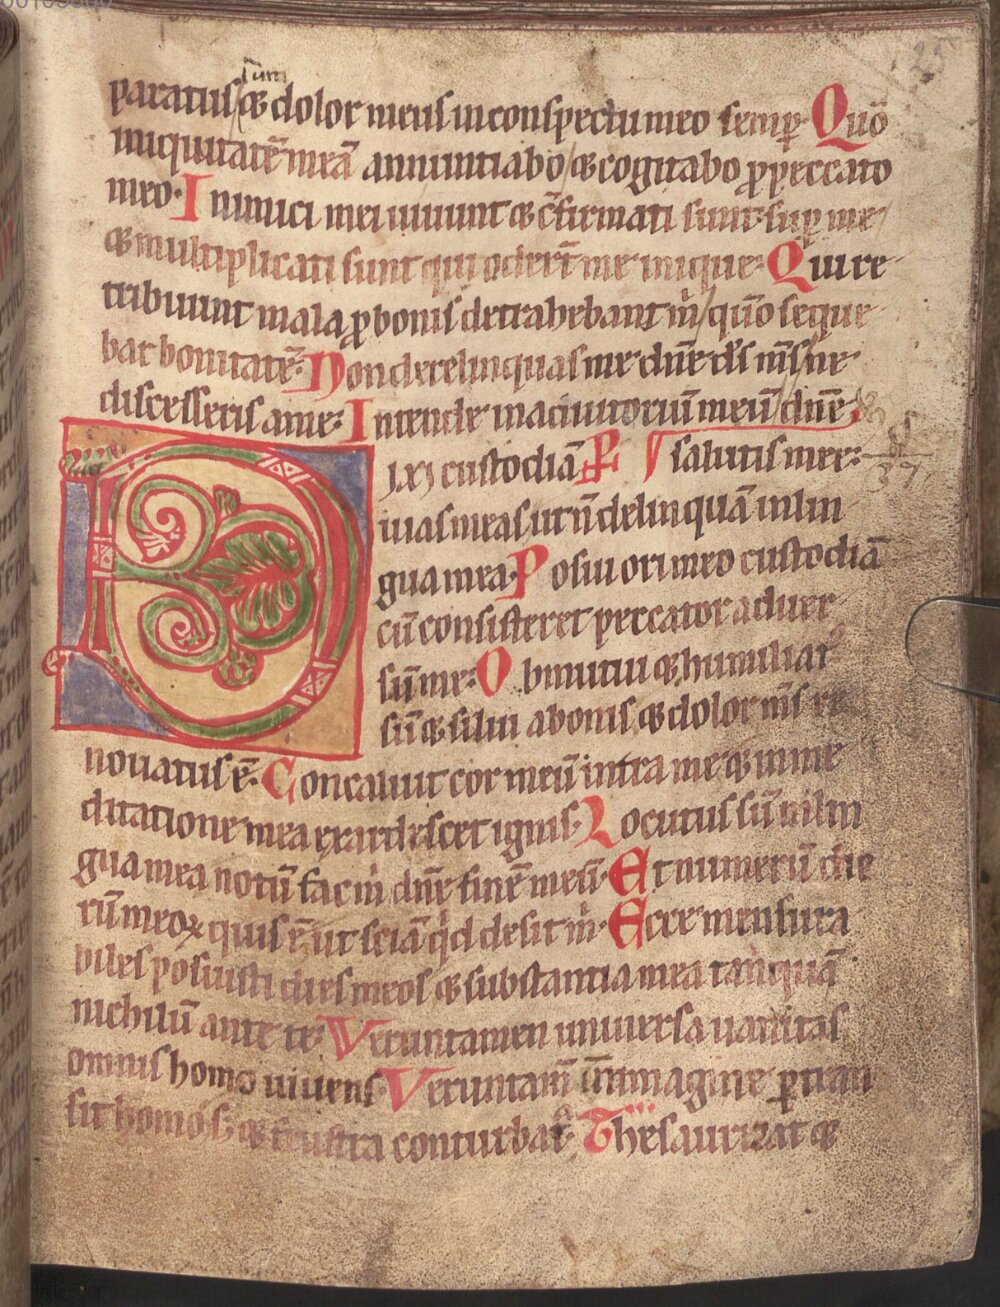 25
sum
paratus / ⁊ dolor meus in conspectu meo semꝑ. Quō
iniquitatē meā annuntiabo / ⁊ cogitabo ꝓ peccato
meo. Inimici mei uiuunt ⁊ cōfirmati sunt suꝑ me /
⁊ multiplicati sunt qui oderūt me inique. Qui re
tribuunt mala ꝓ bonis detrahebant m̄ / quō seque
bar bonitatē. Non derelinquas me dn̄e ds̄ ms̄ ne
discesseris a me. Intende in adiutoriū meū / dn̄e
salutis mee.
Dixi custodiā
uias meas ut n̄ delinquā in lin
gua mea. Posui ori meo custodiā
cū consisteret peccator aduer
sū me. Obmutui ⁊ humiliat᷒
sū ⁊ silui a bonis ⁊ dolor ms̄ re
nouatus ē. Concaluit cor meū intra me ⁊ in me
ditatione mea exardescet ignis. Locutus sū in lin
gua mea notū fac m̄ dn̄e finē meū. Et numerū die
rū meoꝝ quis ē ut sciā qd desit m̄. Ecce mensura
biles posuisti dies meos ⁊ substantia mea tāquā
nichilū ante te. Veruntamen uniuersa uanitas
omnis homo uiuens. Veruntam̄ in imagine ꝑtran
sit homo s; ⁊ frustra conturbat᷒. Thesaurizat ⁊